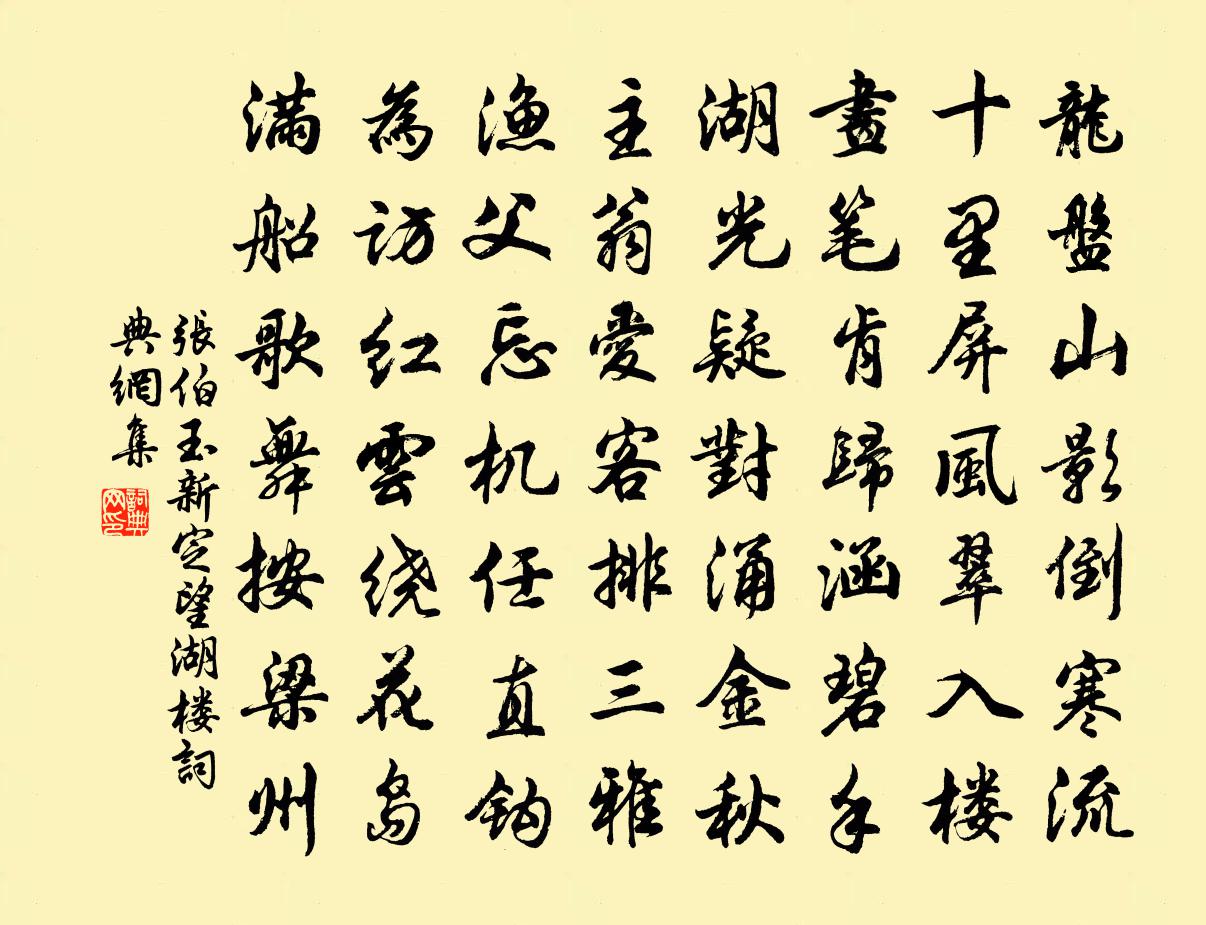 龍盤山影倒寒流
十里屏風翠入楼
畫笔肯歸涵碧手
湖光疑對涌金秋
主翁愛客排三雅
渔父忘机任直钩
為訪红雲绕花岛
满船歌舞按梁州
張伯玉新定望湖楼詞
典網集
詞典网印